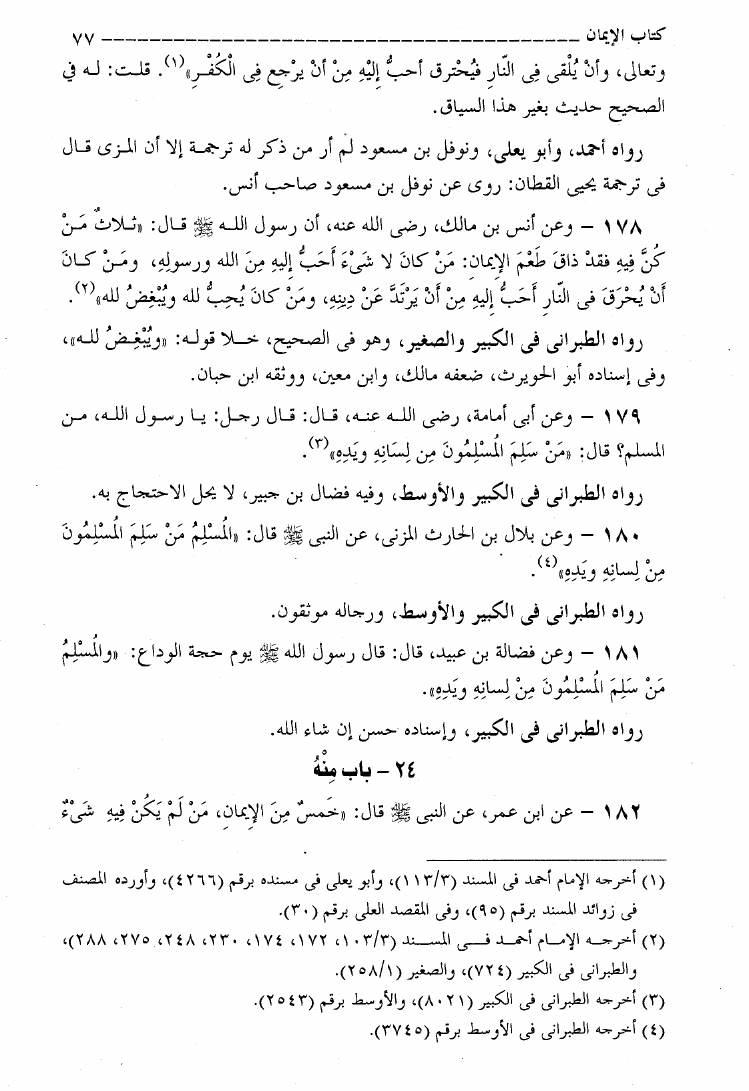 كتاب الإيمان ــــــــــــــــــــــــــــــــــــــــــــــــــــــــ ٧٧
وتعالى، وأنْ يُلْقى فِى النَّارِ فيُحْترق أحبُّ إليْهِ مِنْ أنْ يرْجِع فِى الْكُفْرِ»(١). قلت: له في
الصحيح حديث بغير هذا السياق.
رواه أحمد، وأبو يعلى، ونوفل بن مسعود لم أر من ذكر له ترجمة إلا أن المزى قال
فى ترجمة يحيى القطان: روى عن نوفل بن مسعود صاحب أنس.
١٧٨ – وعن أنس بن مالك، رضى الله عنه، أن رسول الله ﷺ قال: «ثلاثٌ مَنْ
كُنَّ فيهِ فقدْ ذاقَ طَعْمَ الإيمان: مَنْ كانَ لا شَىْءَ أَحَبُّ إليهِ مِنَ الله ورسولِهِ، ومَنْ كانَ
أنْ يُحْرَقَ فى النَّارِ أَحَبُّ إليهِ مِنْ أنْ يَرْتَدَّ عَنْ دِينِهِ، ومَنْ كانَ يُحِبُّ لله ويُبْغِضُ لله»(٢).
رواه الطبرانى فى الكبير والصغير، وهو فى الصحيح، خلا قوله: «ويُبْغِضُ لله»،
وفى إسناده أبو الحويرث، ضعفه مالك، وابن معين، ووثقه ابن حبان.
١٧٩ – وعن أبى أمامة، رضى الله عنه، قال: قال رجل: يا رسول الله، من
المسلم؟ قال: «مَنْ سَلِمَ الْمُسْلِمُونَ مِن لِسَانِهِ ويَدِهِ»(٣).
رواه الطبرانى فى الكبير والأوسط، وفيه فضال بن جبير، لا يحل الاحتجاج به.
١٨٠ – وعن بلال بن الحارث المزنى، عن النبى ﷺ قال: «الْمُسْلِمُ مَنْ سَلِمَ الْمُسْلِمُونَ
مِنْ لِسانِهِ ويَدِهِ»(٤).
رواه الطبرانى فى الكبير والأوسط، ورجاله موثقون.
١٨١ – وعن فضالة بن عبيد، قال: قال رسول الله ﷺ يوم حجة الوداع: «والْمُسْلِمُ
مَنْ سَلِمَ الْمُسْلِمُونَ مِنْ لِسانِهِ ويَدِهِ».
رواه الطبرانى فى الكبير، وإسناده حسن إن شاء الله.
٢٤ – باب مِنْهُ
١٨٢ – عن ابن عمر، عن النبى ﷺ قال: «خَمسٌ مِنَ الإيمان، مَنْ لَمْ يَكُنْ فِيهِ شَىْءٌ
(١) أخرجه الإمام أحمد فى المسند (١١٣/٣)، وأبو يعلى فى مسنده برقم (٤٢٦٦)، وأورده المصنف
فى زوائد المسند برقم (٩٥)، وفى المقصد العلى برقم (٣٠).
(٢) أخرجه الإمام أحمد فى المسند (١٠٣/٣، ١٧٢، ١٧٤، ٢٣٠، ٢٤٨، ٢٧٥، ٢٨٨)،
والطبرانى فى الكبير (٧٢٤)، والصغير (٢٥٨/١).
(٣) أخرجه الطبرانى فى الكبير (٨٠٢١)، والأوسط برقم (٢٥٤٣).
(٤) أخرجه الطبرانى فى الأوسط برقم (٣٧٤٥).